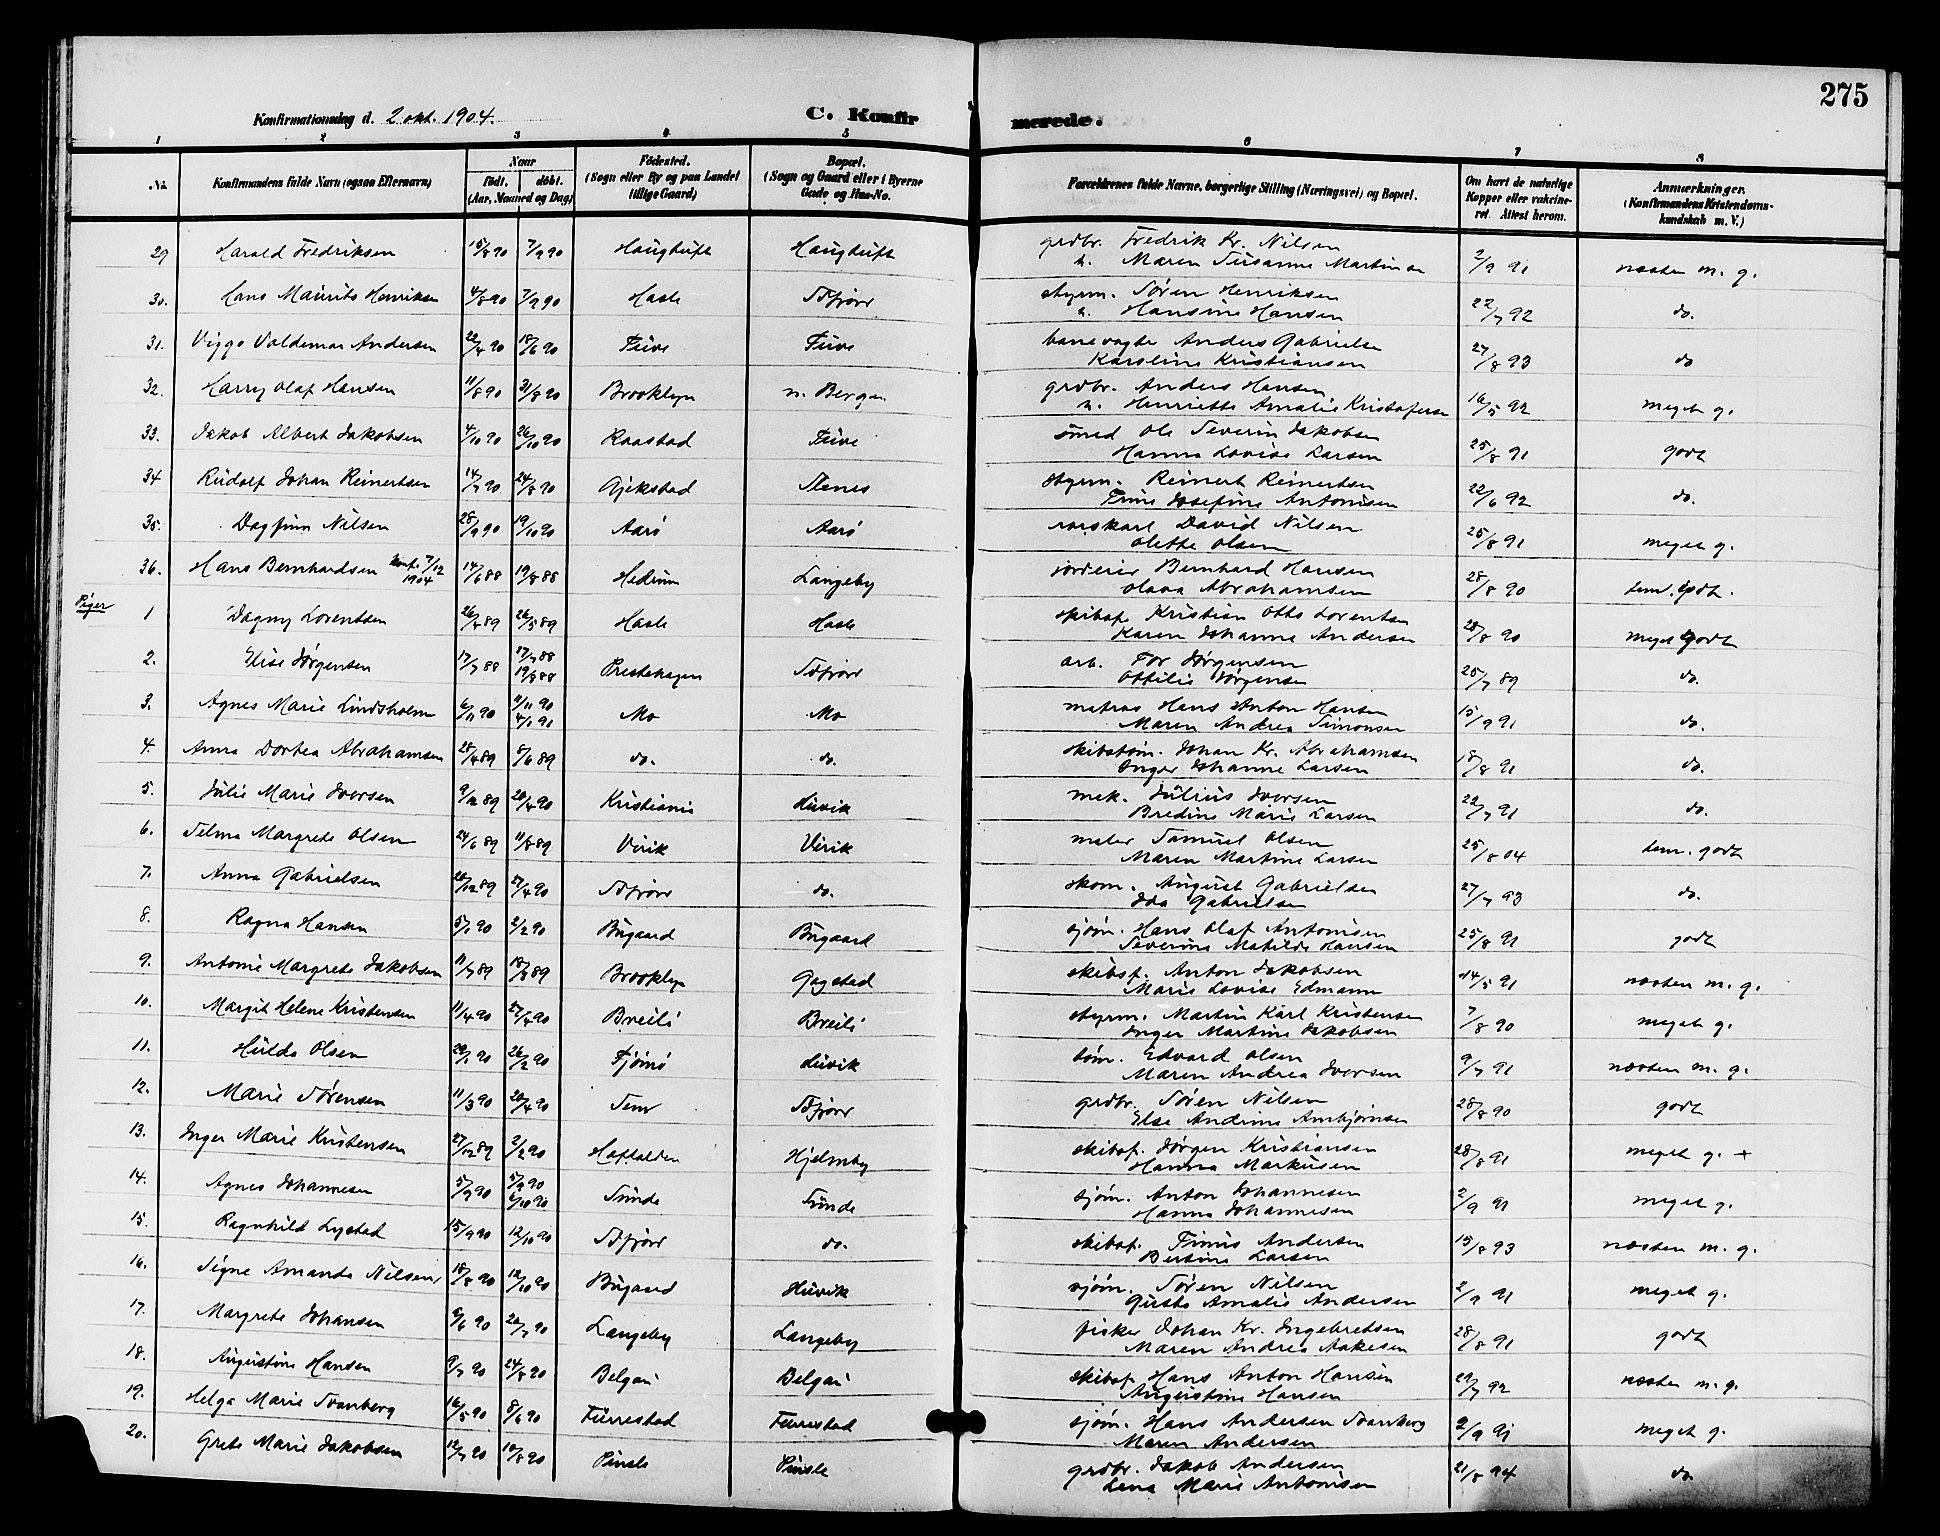 275
Konfirmationsdag d. 2 okt. 1904.
C. Konfirmerede.
1 2 3 4 5 6 7 8
No. Konfirmandens fulde Navn (ogsaa Efternavn) Naar født. døbt. (Aar, Maaned og Dag) Fødested. (Sogn eller By og paa Landet tillige Gaard) Bopæl. (Sogn og Gaard eller i Byerne Gade og Hus-No. Forældrenes fulde Navne, borgerlige Stilling (Næringsvei) og Bopæl. Om havt de naturlige Kopper eller vakcineret. Attest herom. Anmærkninger. (Konfirmandens Kristendomskundskab m. V.)
29 Harald Fredriksen 15/8 90 7/9 90 Haugtuft Haugtuft grdbr. Fredrik Kr. Nilsen 2/9 91 næsten m. g.
h. Maren Susanne Martinsen
30. Hans Maurits Henriksen 4/8 90 7/9 90 Hasle Sdfjorr styrm. Søren Henriksen 22/7 92 do.
h. Hansine Hansen
31. Viggo Valdemar Andersen 22/4 90 18/6 90 Tuve Tuve banevogte Anders Gabrielsen 27/8 93 do
Karoline Kristiansen
32. Harry Olaf Hansen 11/8 90 31/8 90 Brooklyn n. Bergan grdbr. Anders Hansen 16/5 92 meget g.
h. Henriette Amalie Kristofersen
33. Jakob Albert Jakobsen 4/10 90 26/10 90 Raastad Tuve smed Ole Severin Jakobsen 25/8 91 godt
Hanna Lovise Larsen
34 Rudolf Johan Reinertsen 14/7 90 24/8 90 Gjekstad Stenes styrm. Reinert Reinertsen 22/6 92 do.
Trine Josefine Antonisen
35. Dagfinn Nilsen 28/9 90 19/10 90 Aarø Aarø rorskarl David Nilsen 25/8 91 meget g.
Olette Olsen
36. Hans Bernhardsen konf. 7/12 1904 14/6 88 19/8 88 Hedrum Langeby jordeier Bernhard Hansen 28/8 90 tem. godt.
Olava Abrahamsen
Piger
1 Dagny Lorentsen 26/4 89 26/5 89 Hasle Hasle skibsf. Kristian Otto Lorentsen 28/8 90 meget godt
Karen Johanne Andersen
2. Elise Jørgensen 17/7 88 17/7 88 19/8 88 Prestehagen Sdfjorr arb. Tor Jørgensen 25/7 89 do.
Ottilie Jørgensen
3. Agnes Marie Lindsholm 6/11 90 11/11 90 4/1 91 Mo Mo matros Hans Anton Hansen 15/9 91 do.
Maren Andrea Simonsen
4. Anna Dortea Abrahamsen 28/4 89 5/6 89 do. do. skibstøm. Johan Kr. Abrahamsen 18/8 91 do.
Inger Johanne Larsen
5. Julie Marie Iversen 9/12 89 20/4 90 Kristiania Huvik mek. Julius Iversen 22/7 91 do.
Bredine Marie Larsen
6. Selma Margrete Olsen 24/6 89 11/8 89 Virik Virik maler Samuel Olsen 25/8 04 tem. godt
Maren Martine Larsen
7. Anna Gabrielsen 28/12 89 27/4 90 Sdfjorr do. skom. August Gabrielsen 27/7 93 do.
Ida Gabrielsen
8. Ragna Hansen 5/1 90 2/2 90 Bugaard Bugaard sjøm. Hans Olaf Antonisen 25/8 91 godt
Severine Matilde Hansen
9. Antonie Margrete Jakobsen 11/7 89 18/8 89 Brooklyn Gogstad skibsf. Anton Jakobsen 14/5 91 næsten m. g.
Marie Lovise Edmann
10. Margit Helene Kristensen 11/4 90 27/4 90 Breili Breili styrm. Martin Karl Kristensen 7/8 90 meget g.
Inger Martine Jakobsen
11. Hulda Olsen 29/1 90 26/2 90 Tjømø Huvik tøm. Edvard Olsen 9/7 91 næsten m. g.
Maren Andrea Iversen
12. Marie Sørensen 11/3 90 20/4 90 Sem Sdfjorr grdbr. Søren Nilsen 28/8 90 godt
Else Andrine Arnbjørnsen
13. Inger Marie Kristensen 27/12 89 2/2 90 Haftalden Hjelmby skibsf. Jørgen Kristiansen 28/8 91 meget g. +
Hanna Markusen
14. Agnes Johannesen 5/9 90 5/9 90 6/10 90 Sunde Sunde sjøm. Anton Johannesen 2/9 91 meget g.
Hanna Johannesen
15. Ragnhild Lystad 15/9 90 12/10 90 Sdfjorr do. skibsf. Trinus Andersen 15/8 93 næsten m. g.
Bertine Larsen
16. Signe Amanda Nilsen 18/8 90 12/10 90 Bugaard Huvik sjøm. Søren Nilsen 2/9 91 meget g.
Gusta Amalie Andersen
17. Margrete Johansen 6/6 90 20/7 90 Langeby Langeby fisker Johan Kr. Ingebretsen 28/8 91 godt
Maren Andrea Aakesen
18. Augustine Hansen 9/7 90 24/8 90 Belgau Belgau skibsf. Hans Anton Hansen 29/7 92 næsten m. g.
Augustine Hansen
19. Helga Marie Svanberg 16/5 90 8/6 90 Furrestad Furrestad sjøm. Hans Andersen Svanberg 2/9 91 meget g.
Maren Andersen
20. Grete Marie Jakobsen 12/7 90 10/8 90 Pindsle Pindsle grdbr. Jakob Andersen 21/8 94 do.
Lena Marie Antonisen